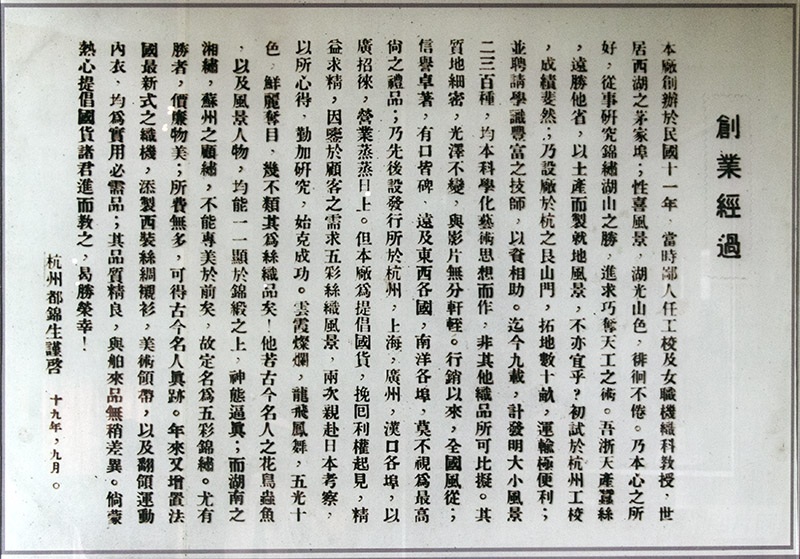 創業經過
本廠創辦於民國十一年，當時鄙人任工校及女職機織科教授，世
居西湖之茅家埠；性喜風景，湖光山色，徘徊不倦。乃本心之所
好，從事研究錦繡湖山之勝，進求巧奪天工之術。吾浙天產蠶絲
，遠勝他省，以土產而製就地風景，不亦宜乎？初試於杭州工校
，成績斐然；乃設廠於杭之艮山門，拓地數十畝，運輸極便利；
並聘請學識豐富之技師，以資相助。迄今九載，計發明大小風景
二三百種，均本科學化藝術思想而作，非其他織品所可比擬。其
質地細密，光澤不變，與影片無分軒輊。行銷以來，全國風從；
信譽卓著，有口皆碑，遠及東西各國，南洋各埠，莫不視爲最高
尚之禮品；乃先後設發行所於杭州，上海，廣州，漢口各埠，以
廣招徠，營業蒸蒸日上。但本廠爲提倡國貨，挽回利權起見，精
益求精，因鑒於顧客之需求五彩絲織風景，兩次親赴日本考察，
以所心得，勤加研究，始克成功。雲霞燦爛，龍飛鳳舞，五光十
色，鮮麗奪目，幾不類其爲絲織品矣！他若古今名人之花鳥蟲魚
，以及風景人物，均能一一顯於錦緞之上，神態逼眞；而湖南之
湘繡，蘇州之顧繡，不能專美於前矣，故定名爲五彩錦繡。尤有
勝者，價廉物美；所費無多，可得古今名人眞跡。年來又增置法
國最新式之織機，添製西裝絲綢襯衫，美術領帶，以及翻領運動
內衣，均爲實用必需品；其品質精良，與舶來品無稍差異。倘蒙
熱心提倡國貨諸君進而敎之，曷勝榮幸！
杭州都錦生謹啓 十九年，九月。